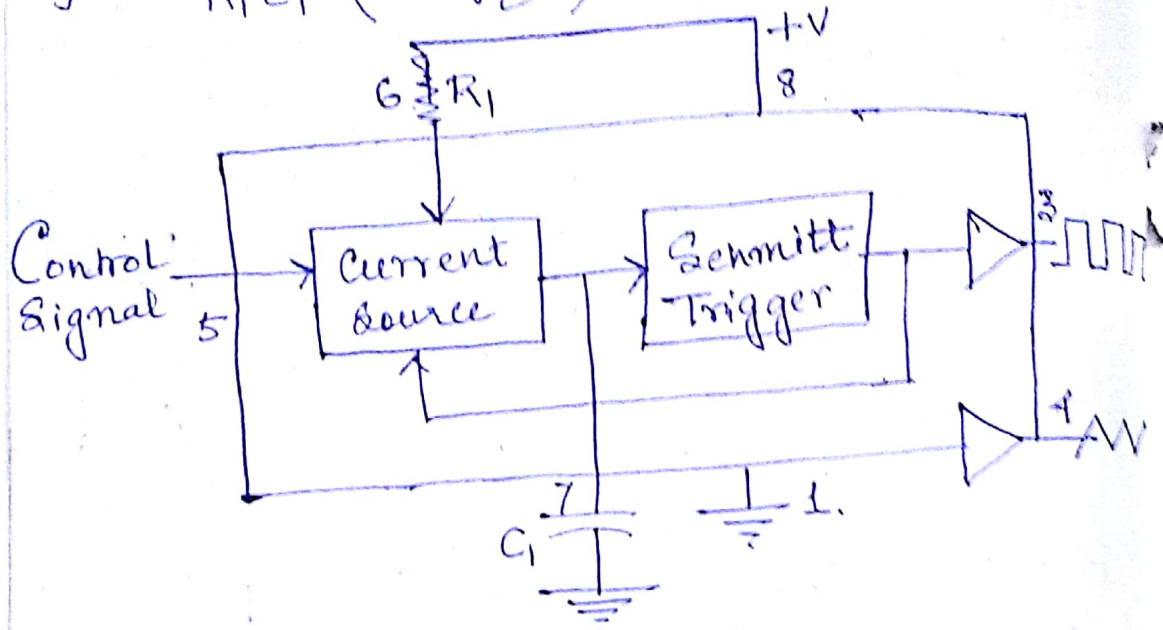 R₁C₁ (
+V
8
6 R₁
Control
Signal
5
Current
Source
Schmitt
Trigger
3
4
7
C₁
1.